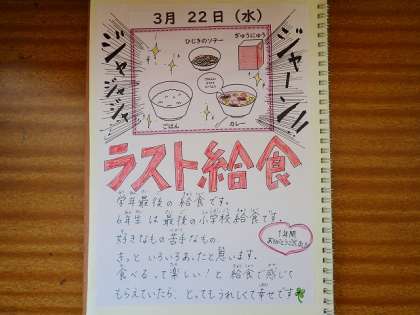 3月 22日(水)
ジャジャジャ
ジャーン!!
ひじきのソテー
ぎゅうにゅう
ごはん
カレー
ラスト給食
学年最後の給食です。
6年生は最後の小学校給食です。
好きなもの苦手なもの
きっといろいろあったと思います。
食べるって楽しい!と給食で感じて
もらえていたら、とってもうれしくて幸せです
1年間
ありがとうございました